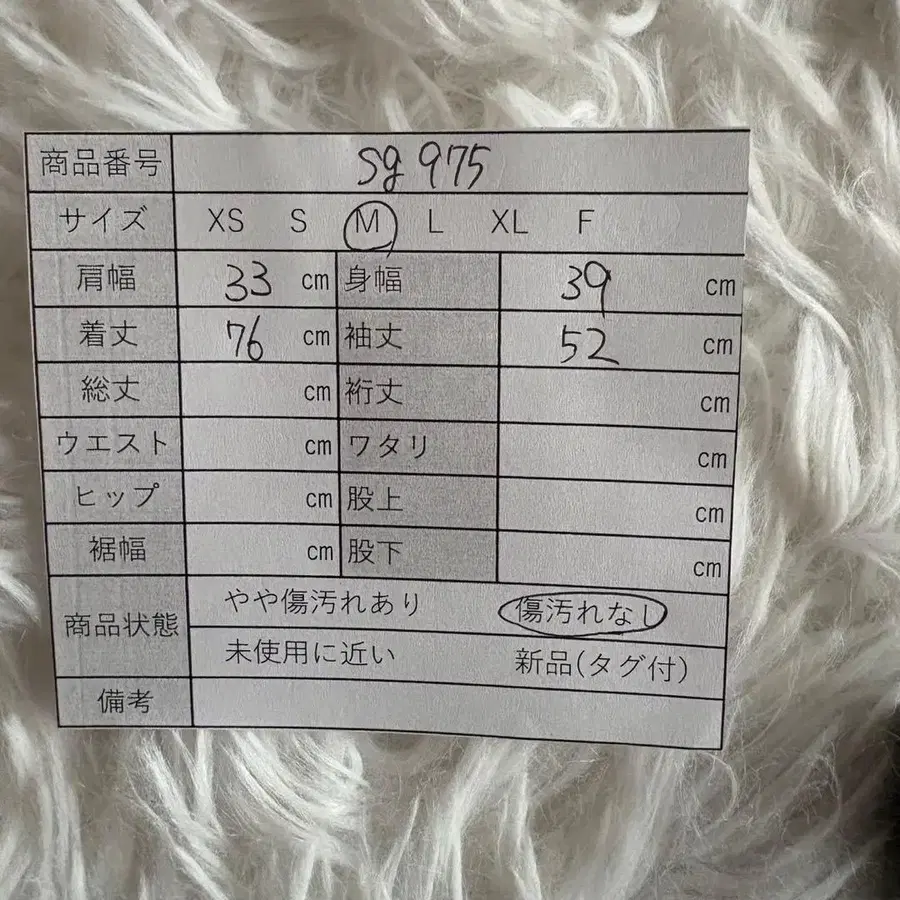 商品番号 sg 975
サイズ XS S M L XL F
肩幅 33 cm 身幅 39 cm
着丈 76 cm 袖丈 52 cm
総丈 cm 裄丈 cm
ウエスト cm ワタリ cm
ヒップ cm 股上 cm
裾幅 cm 股下 cm
商品状態 やや傷汚れあり 傷汚れなし
未使用に近い 新品(タグ付)
備考